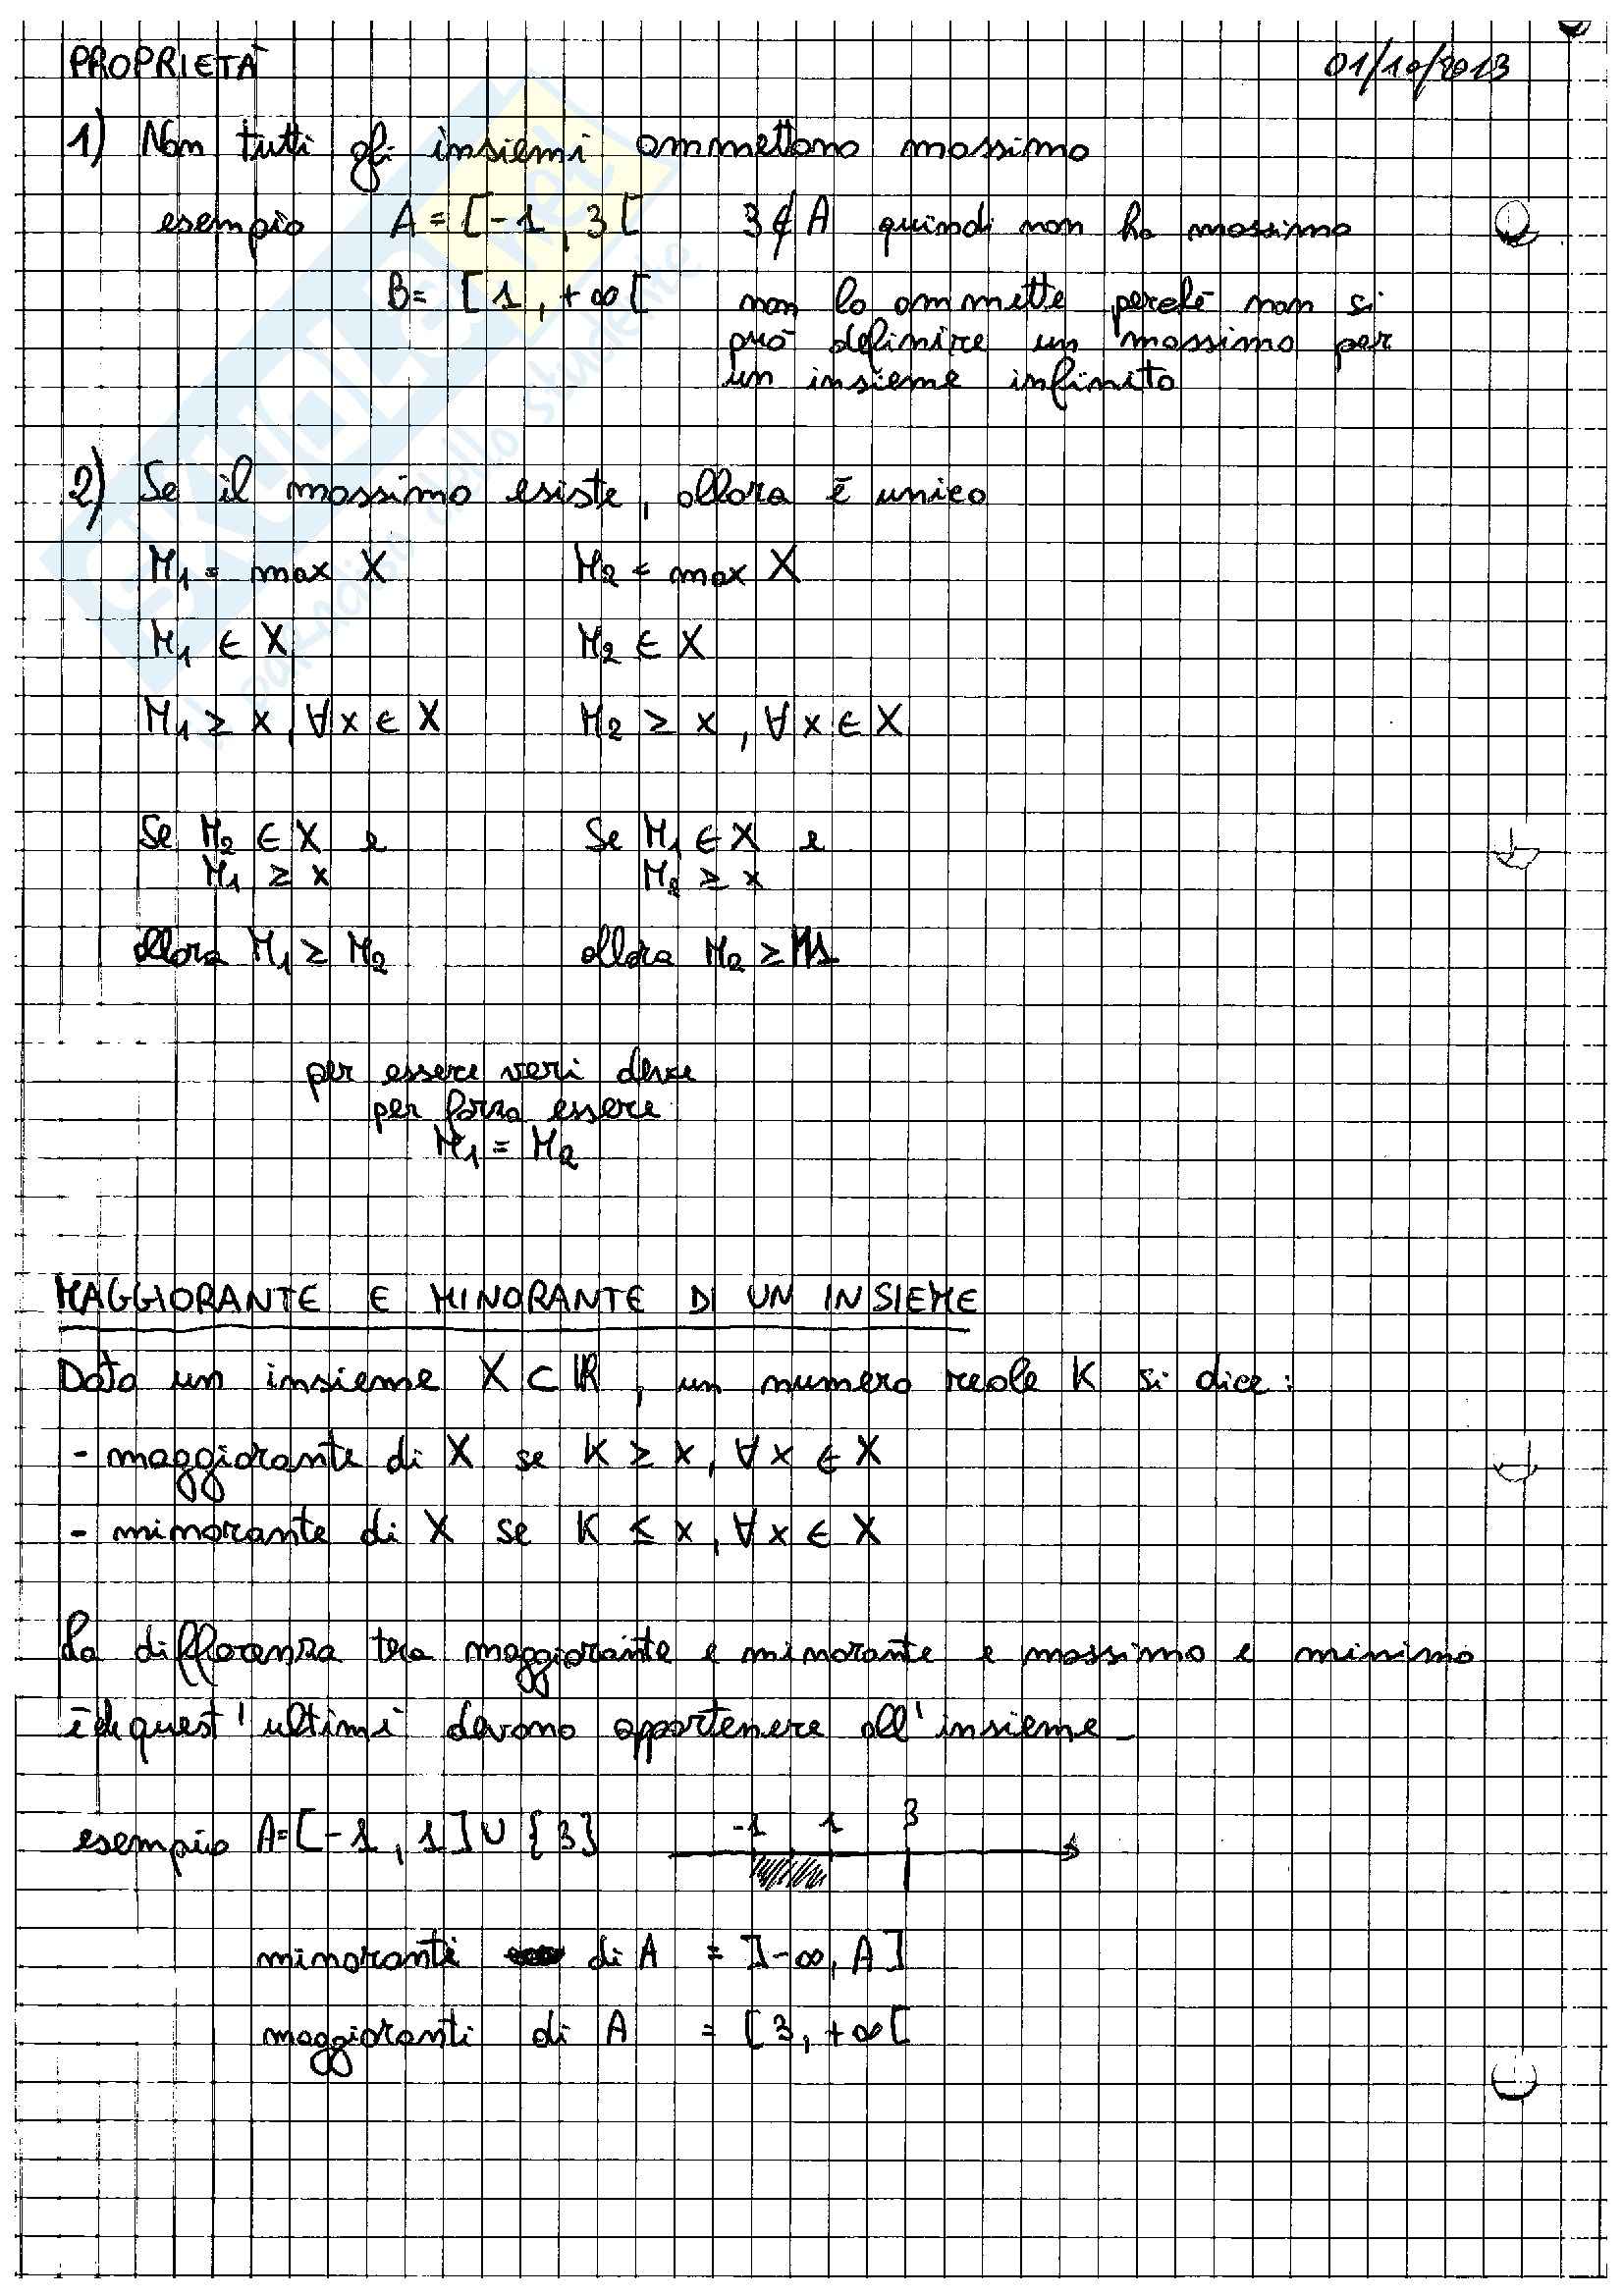 PROPRIETÀ 01/10/2013
1) Non tutti gli insiemi ammettono massimo
esempio A = [-1, 3[ 3 ∉ A quindi non ha massimo
B = [1, +∞[ non lo ammette perchè non si
può definire un massimo per
un insieme infinito
2) Se il massimo esiste, allora è unico
M₁ = max X M₂ = max X
M₁ ∈ X M₂ ∈ X
M₁ ≥ x, ∀x ∈ X M₂ ≥ x, ∀x ∈ X
Se M₂ ∈ X e Se M₁ ∈ X e
M₁ ≥ x M₂ ≥ x
allora M₁ ≥ M₂ allora M₂ ≥ M1
per essere veri deve
per forza essere
M₁ = M₂
MAGGIORANTE E MINORANTE DI UN INSIEME
Dato un insieme X ⊂ ℝ, un numero reale K si dice:
- maggiorante di X se K ≥ x, ∀x ∈ X
- minorante di X se K ≤ x, ∀x ∈ X
La differenza tra maggiorante e minorante e massimo e minimo
è che quest'ultimi devono appartenere all'insieme
esempio A = [-1, 1] ∪ {3} -1 1 3
minoranti di A = ]-∞, A]
maggioranti di A = [3, +∞[